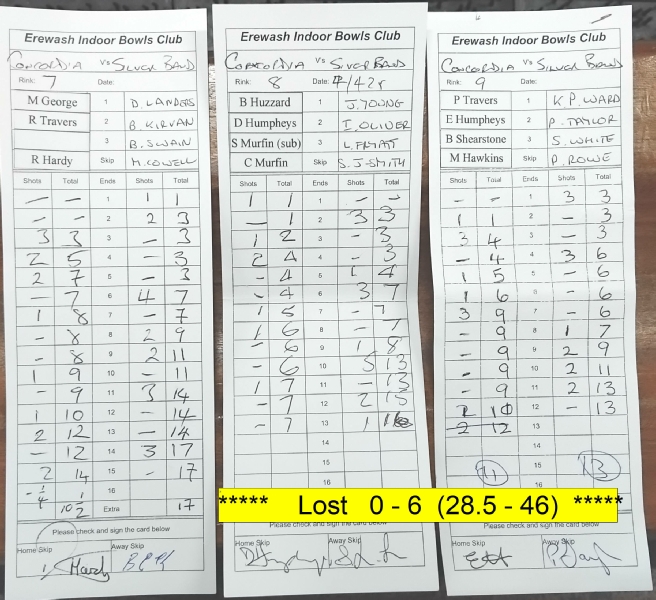 Erewash Indoor Bowls Club
CONCORDIA VS SILVER BAND
Rink: 7 Date:
M George 1 D. LANDERS
R Travers 2 B. KIRVAN
3 B. SWAIN
R Hardy Skip M. COWELL
Shots Total Ends Shots Total
— — 1 1 1
- - 2 2 3
3 3 3 - 3
2 5 4 - 3
2 7 5 - 3
- 7 6 4 7
1 8 7 - 7
- 8 8 2 9
- 8 9 2 11
1 9 10 - 11
- 9 11 3 14
1 10 12 - 14
2 12 13 - 14
- 12 14 3 17
2 14 15 - 17
-1/4 16
10 1/2 Extra 17
Please check and sign the card below
Home Skip Away Skip
Hardy
Erewash Indoor Bowls Club
CONCORDIA VS SILVER BAND
Rink: 8 Date: 4/42r
B Huzzard 1 J. YOUNG
D Humpheys 2 I. OLIVER
S Murfin (sub) 3
C Murfin Skip S. J-SMITH
Shots Total Ends Shots Total
1 1 1 - -
- 1 2 3 3
1 2 3 - 3
2 4 4 - 3
- 4 5 1 4
- 4 6 3 7
1 5 7 - 7
1 6 8 - 7
- 6 9 1 8
- 6 10 5 13
1 7 11 - 13
- 7 12 2 15
- 7 13 1 16
14
15
***** Lost 0 - 6 (28.5 - 46) *****
Please check and sign the card below
Home Skip Away Skip
Erewash Indoor Bowls Club
CONCORDIA VS SILVER BAND
Rink: 9 Date:
P Travers 1 K P. WARD
E Humpheys 2 P. TAYLOR
B Shearstone 3 S. WHITE
M Hawkins Skip P. ROWE
Shots Total Ends Shots Total
- - 1 3 3
1 1 2 - 3
3 4 3 - 3
- 4 4 3 6
1 5 5 - 6
1 6 6 - 6
3 9 7 - 6
- 9 8 1 7
- 9 9 2 9
- 9 10 2 11
- 9 11 2 13
1 10 12 - 13
2 12 13
14
11 15 13
16
Please check and sign the card below
Home Skip Away Skip